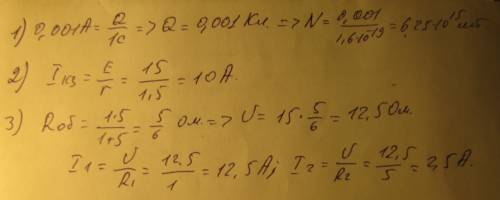 1) 0,001A = Q/1c => Q = 0,001 Кл. => N = 0,001/1,6·10^19 = 6,25·10^15 шт
2) Iкз = E/r = 15/1,5 = 10 A.
3) Rоб = 1·5/1+5 = 5/6 Ом. => U = 15·5/6 = 12,5 Ом.
I1 = U/R1 = 12,5/1 = 12,5 A; I2 = U/R2 = 12,5/5 = 2,5 A.